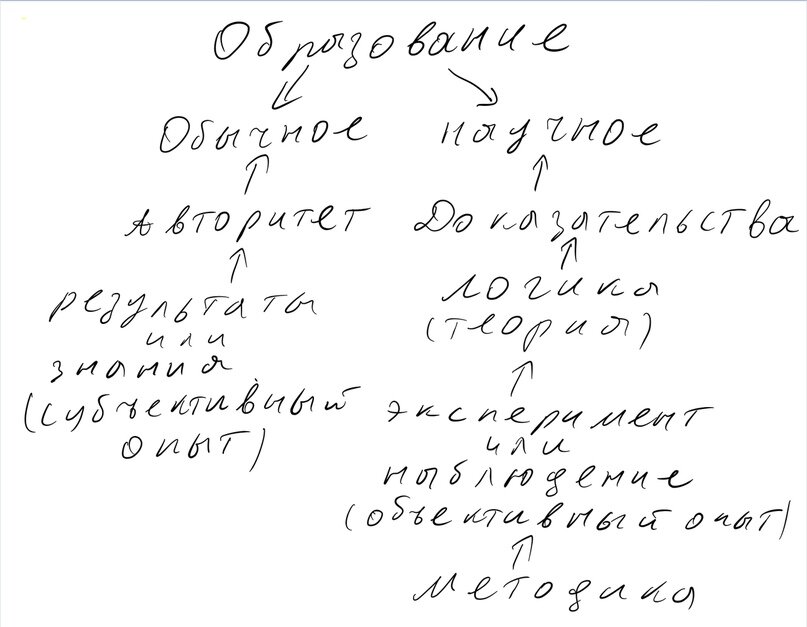 Образование
Обычное
научное
Авторитет
Доказательства
результаты
или
знания
(субъективный
опыт)
логика
(теория)
эксперимент
или
наблюдение
(объективный опыт)
методика